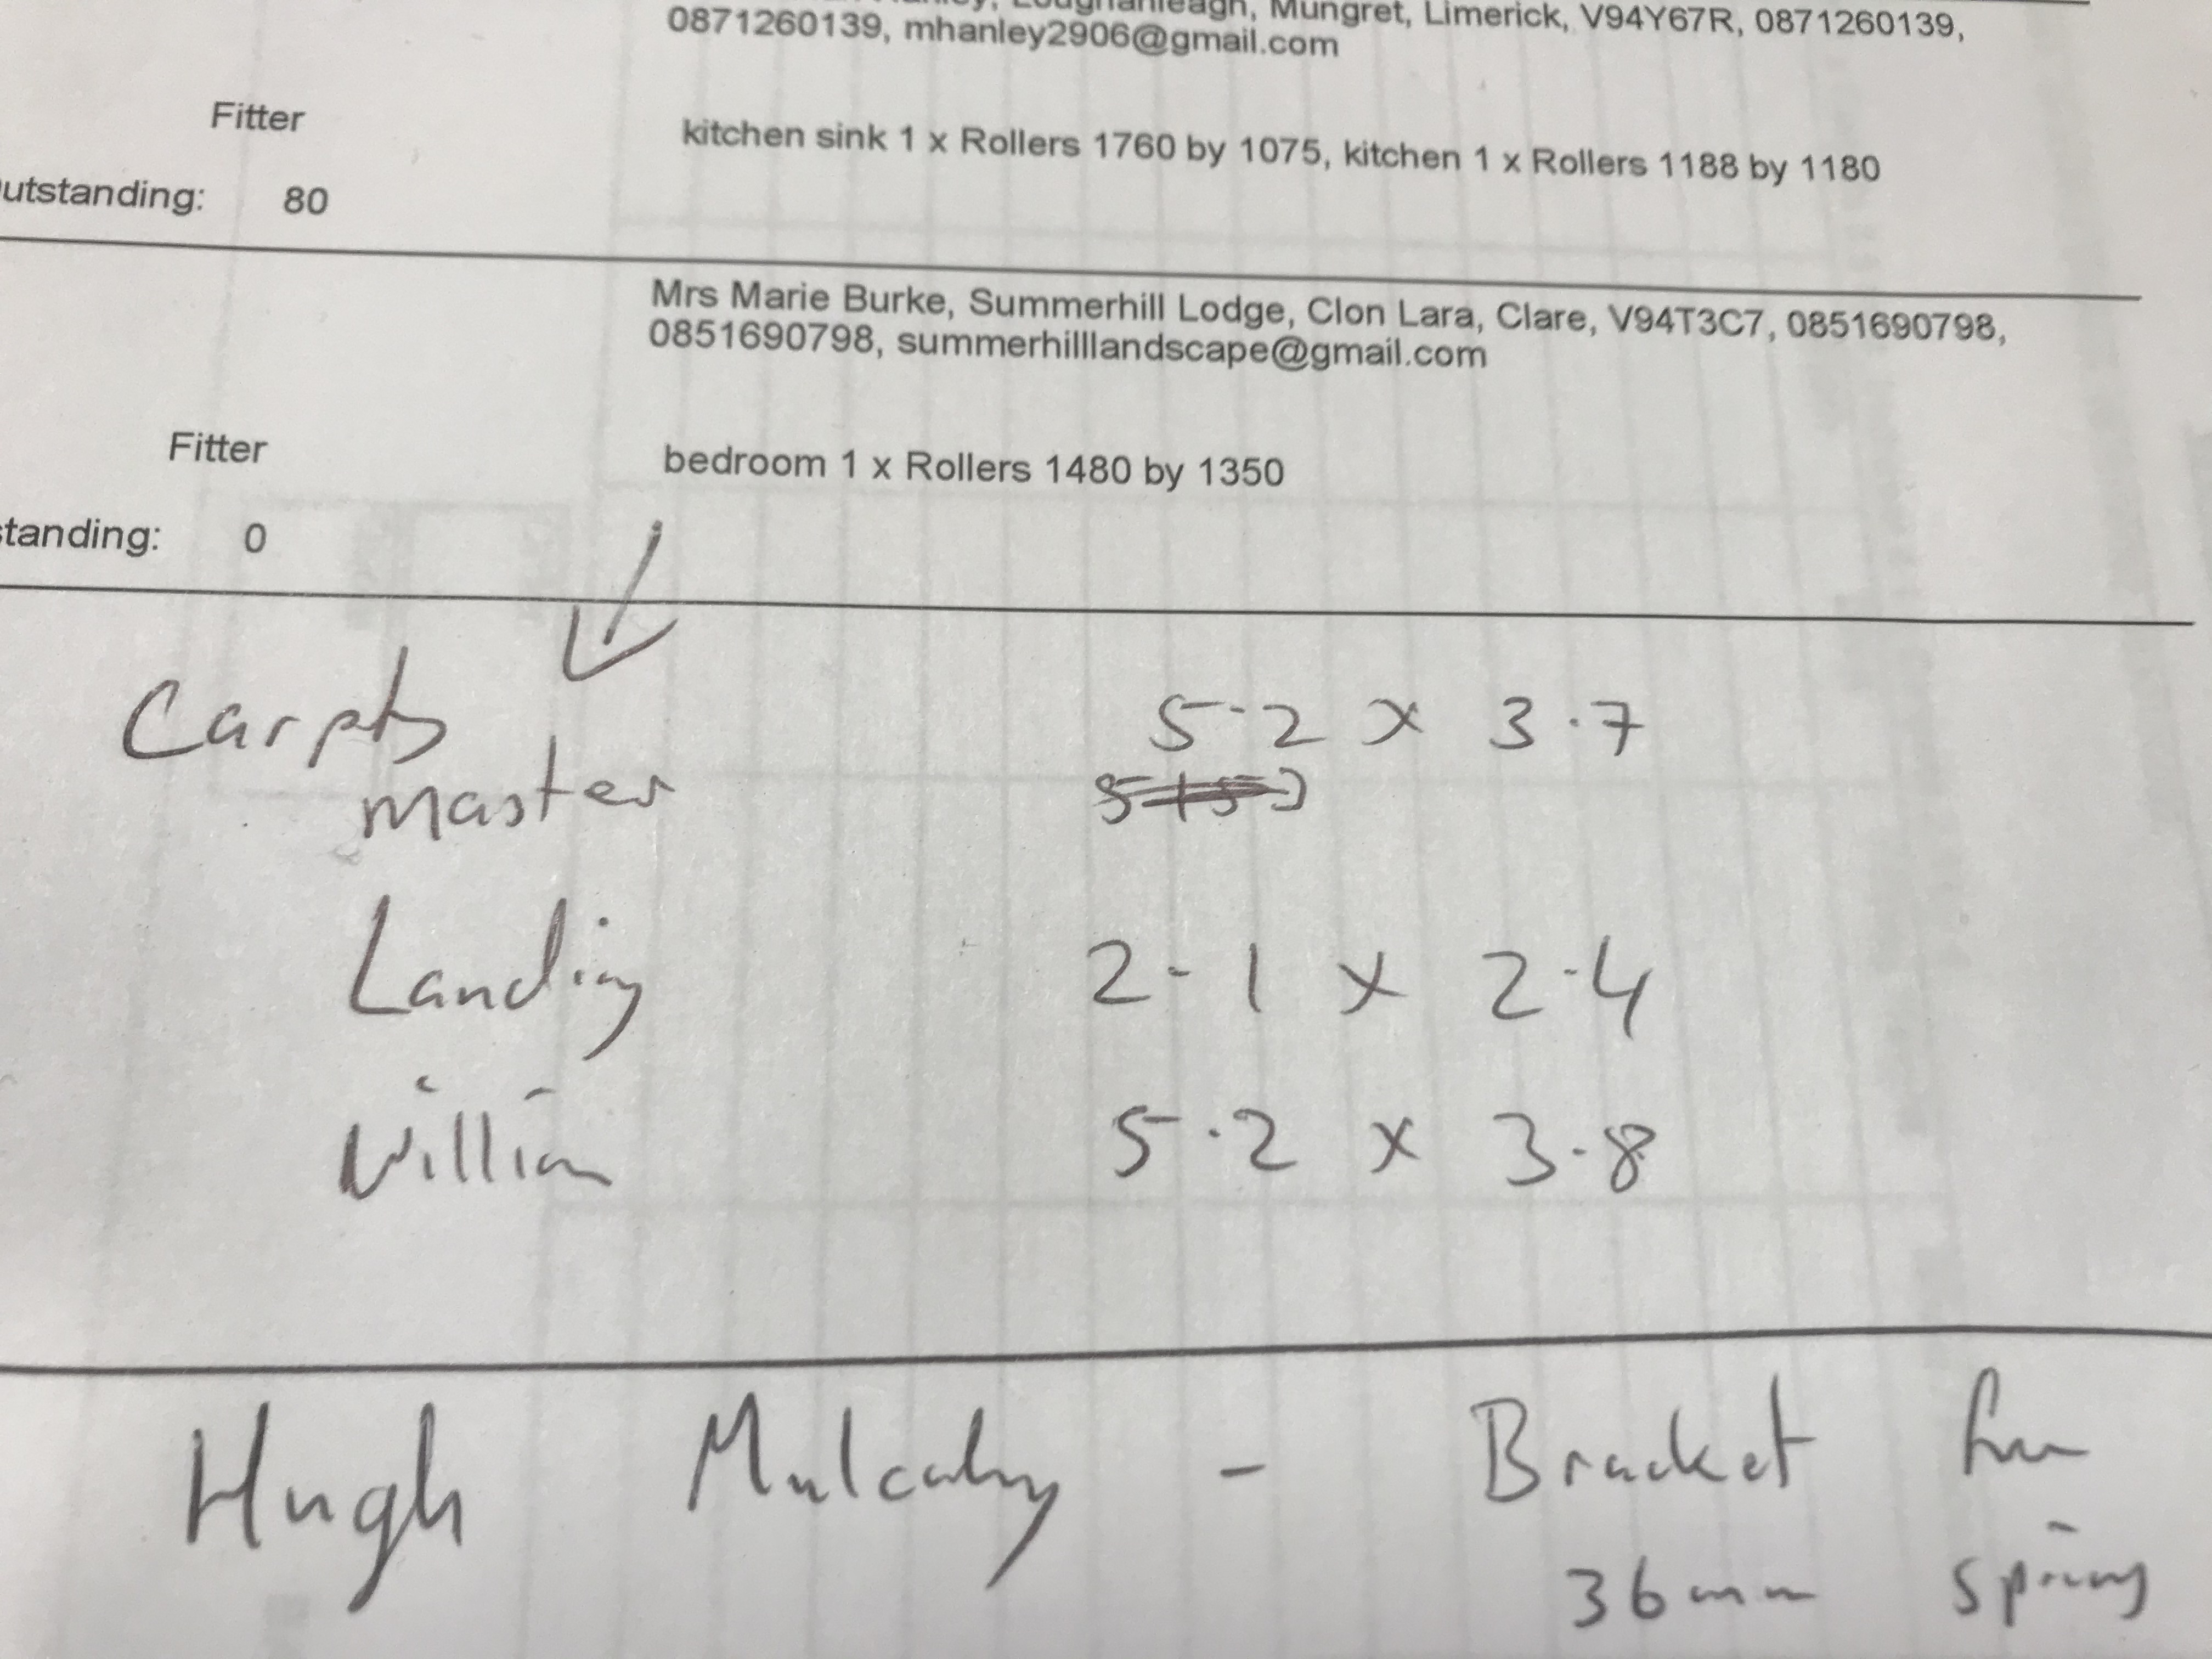 Mungret, Limerick, V94Y67R, 0871260139,
0871260139, mhanley2906@gmail.com
Fitter
kitchen sink 1 x Rollers 1760 by 1075, kitchen 1 x Rollers 1188 by 1180
utstanding: 80
Mrs Marie Burke, Summerhill Lodge, Clon Lara, Clare, V94T3C7, 0851690798,
0851690798, summerhilllandscape@gmail.com
Fitter
bedroom 1 x Rollers 1480 by 1350
standing: 0
Carpets 5.2 x 3.7
master
Landing 2.1 x 2.4
William 5.2 x 3.8
Hugh Mulcahy - Bracket for
36mm spring